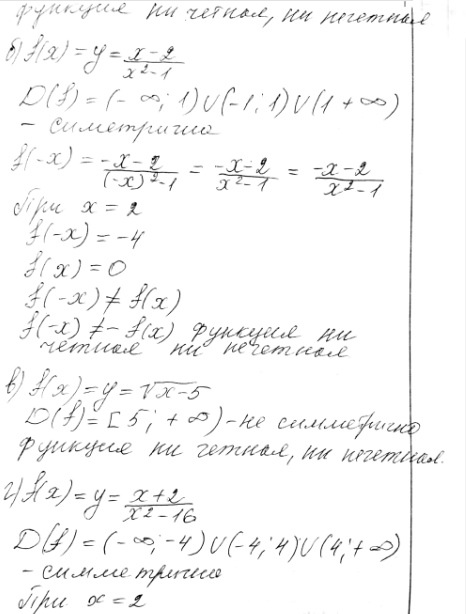 функция ни четная, ни нечетная
б) f(x) = y = x-2 / x²-1
D(f) = (-∞; 1) ∪ (-1; 1) ∪ (1 +∞)
- симетрично
f(-x) = -x-2 / (-x)²-1 = -x-2 / x²-1 = -x-2 / x²-1
При x = 2
f(-x) = -4
f(x) = 0
f(-x) ≠ f(x)
f(-x) ≠ -f(x) функция ни
четная ни нечетная
в) f(x) = y = √x-5
D(f) = [5; +∞) - не симметрично
функция ни четная, ни нечетная.
г) f(x) = y = x+2 / x²-16
D(f) = (-∞; -4) ∪ (-4; 4) ∪ (4; +∞)
- симметрично
При x = 2